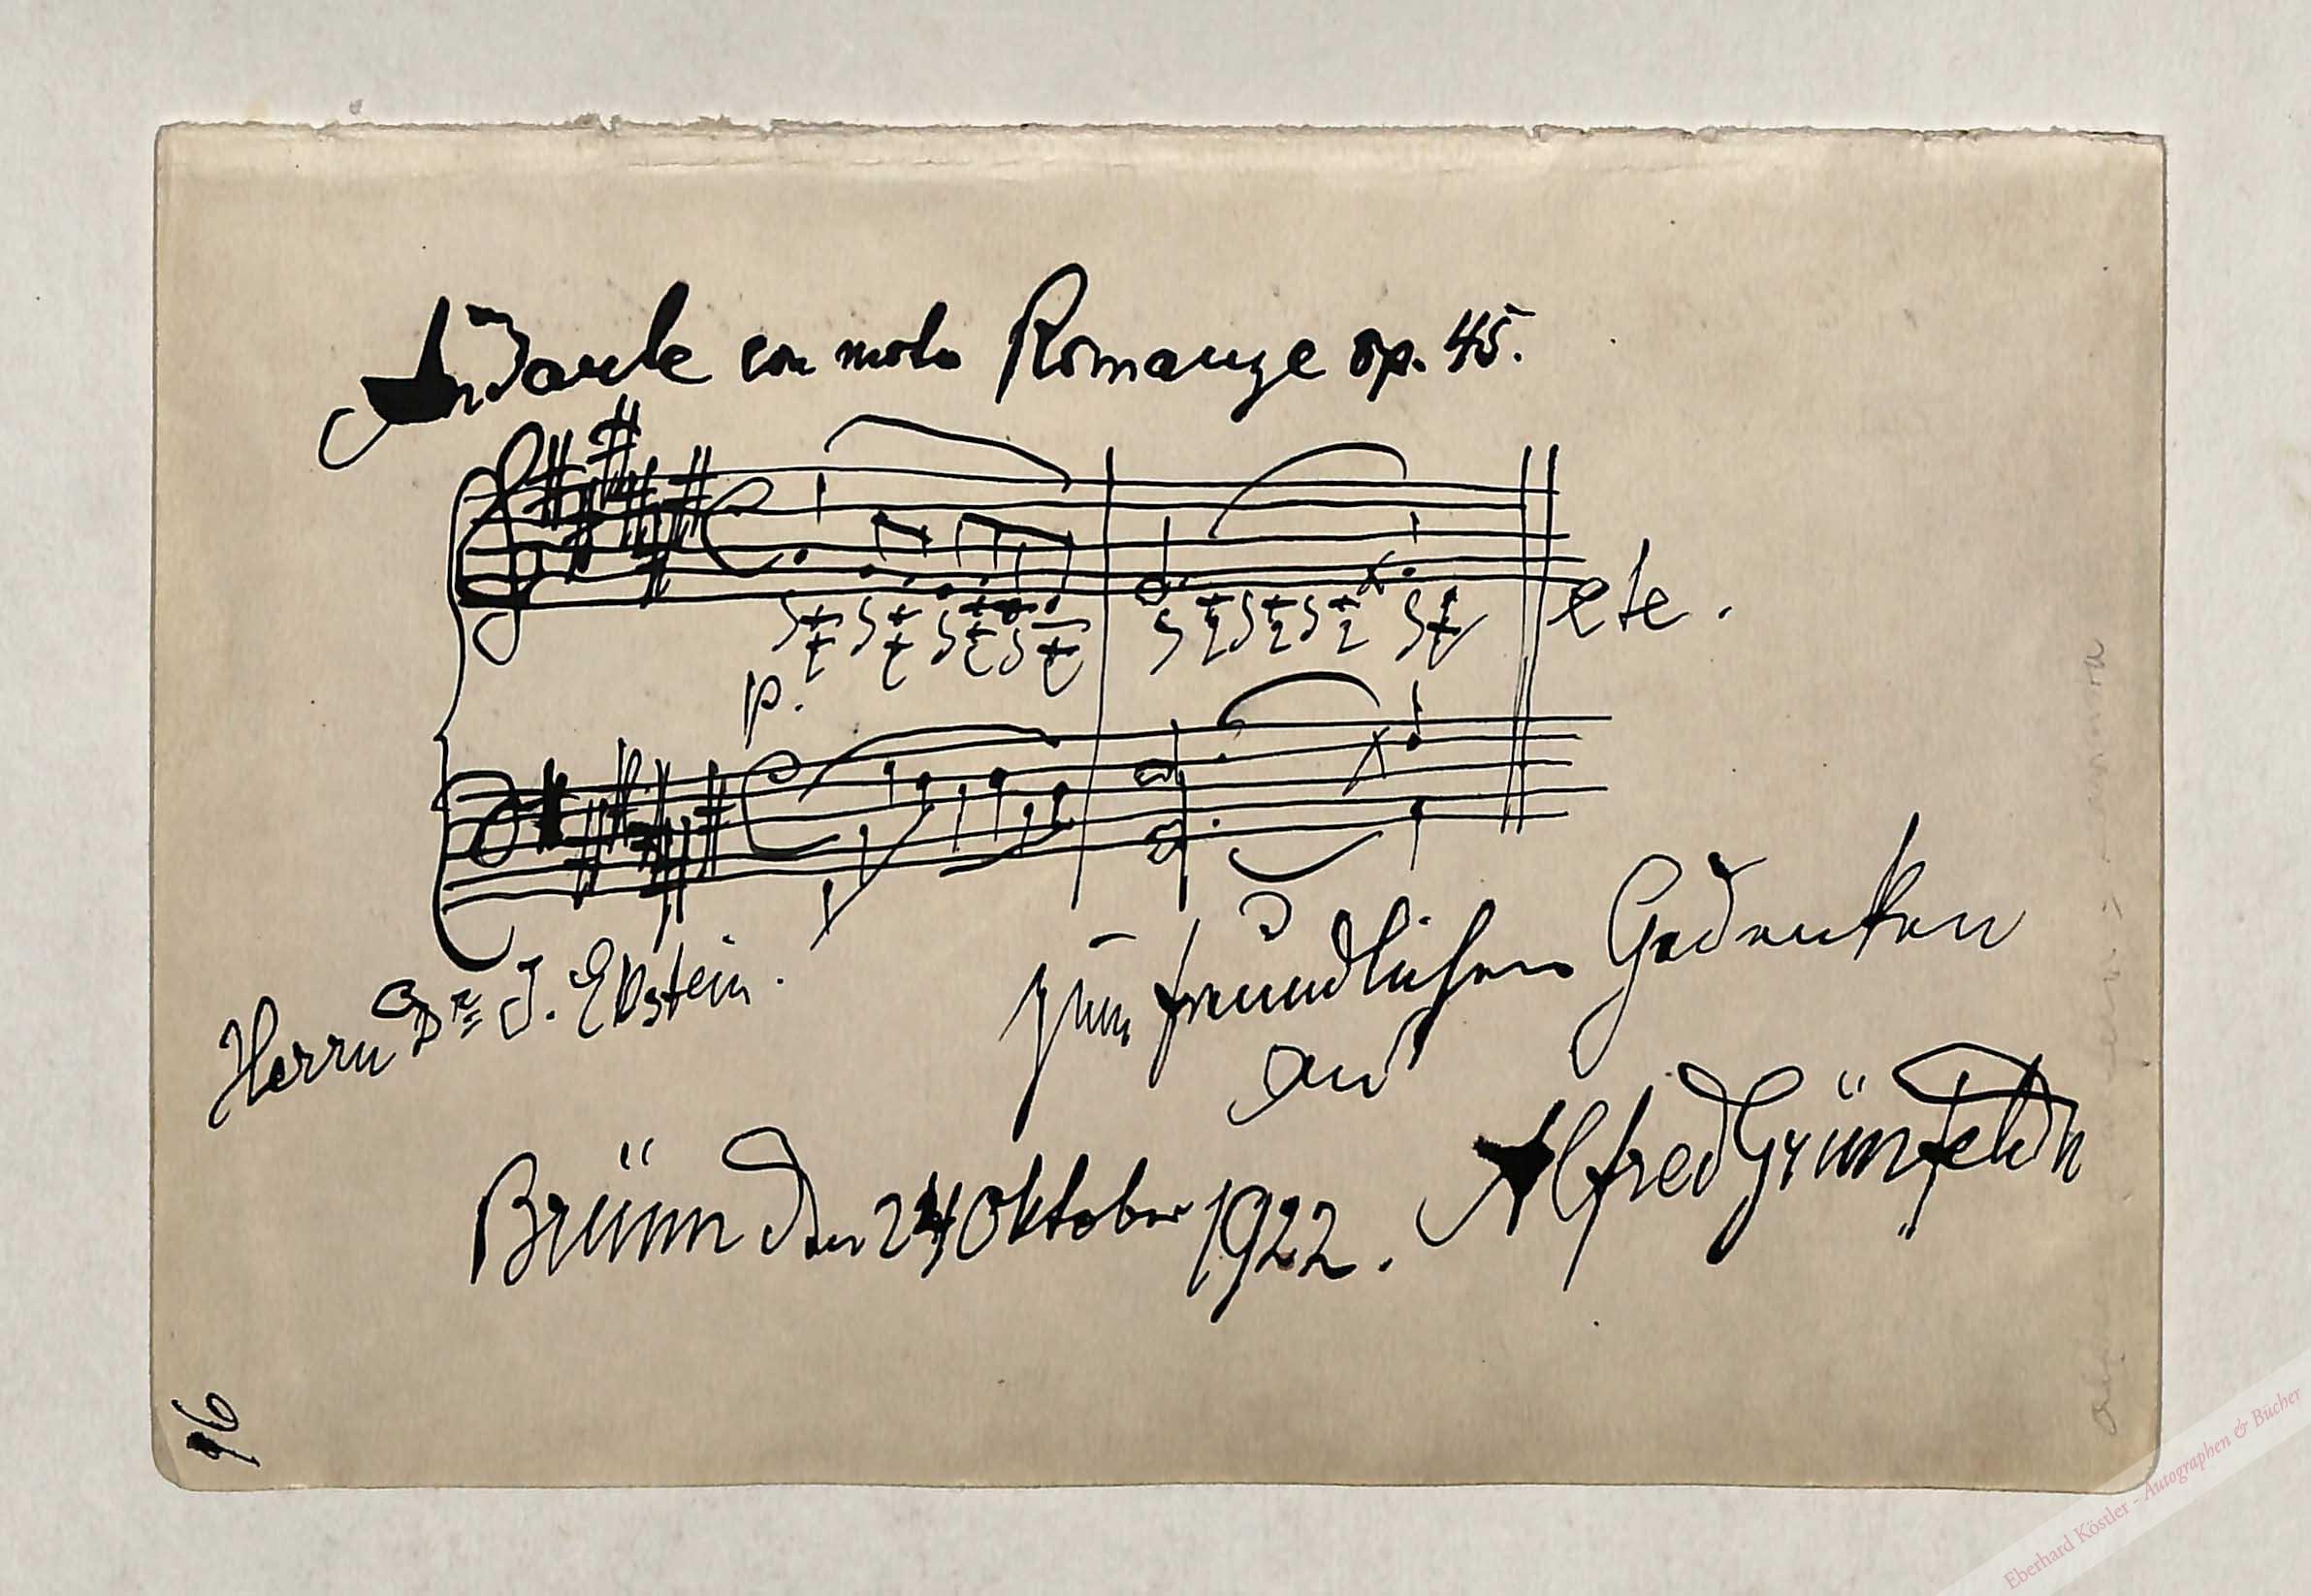 Andante con moto Romanze op. 45.
p.
etc.
Herrn Dr J. Epstein.
zum freundlichen Gedenken
an
Alfred Grünfeld
Brünn den 24 Oktober 1922.
96
Eberhard Köstler - Autographen & Bücher